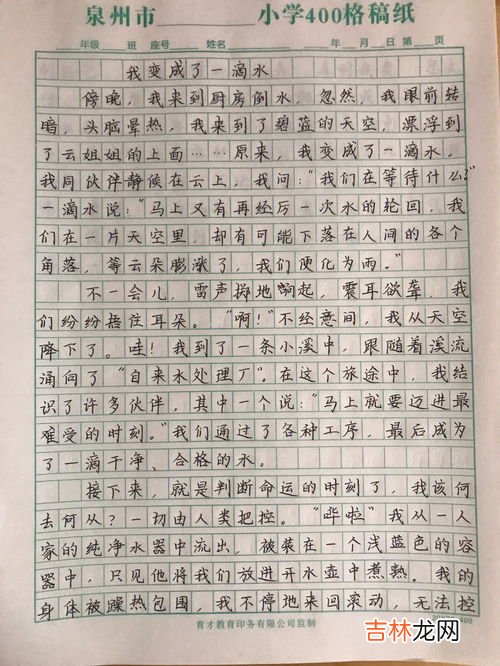 泉州市 小学400格稿纸
年级 班 座号 姓名 年 月 日 第 页
我变成了一滴水
傍晚，我来到厨房倒水，忽然，我眼前转
暗，头脑晕热，我来到了碧蓝的天空，漂浮到
了云姐姐的上面……原来，我变成了一滴水。
我同伙伴静候在云上，我问："我们在等待什么？"
一滴水说："马上又有再经历一次水的轮回，我
们在一片天空里，却有可能下落在人间的各个
角落，等云朵膨涨了，我们便化为雨。"
不一会儿，雷声掷地响起，震耳欲聋，我
们纷纷捂住耳朵。"啊！"不经意间，我从天空
降下了。哇！我到了一条小溪中，跟随着溪流
涌向了"自来水处理厂"。在这个旅途中，我结
识了许多伙伴，其中一个说："马上就要迈进最
难受的时刻。"我们通过了各种工序，最后成为
了一滴干净、合格的水。
接下来，就是判断命运的时刻了，我该何
去何从？一切由人类把控。"哗啦"我从一人
家的纯净水器中流出，被装在一个浅蓝色的容
器中，只见他将我们放进开水壶中煮熟。我的
身体被躁热包围，我不停地来回滚动，无法控
育才教育印务有限公司监制
吉林龙网